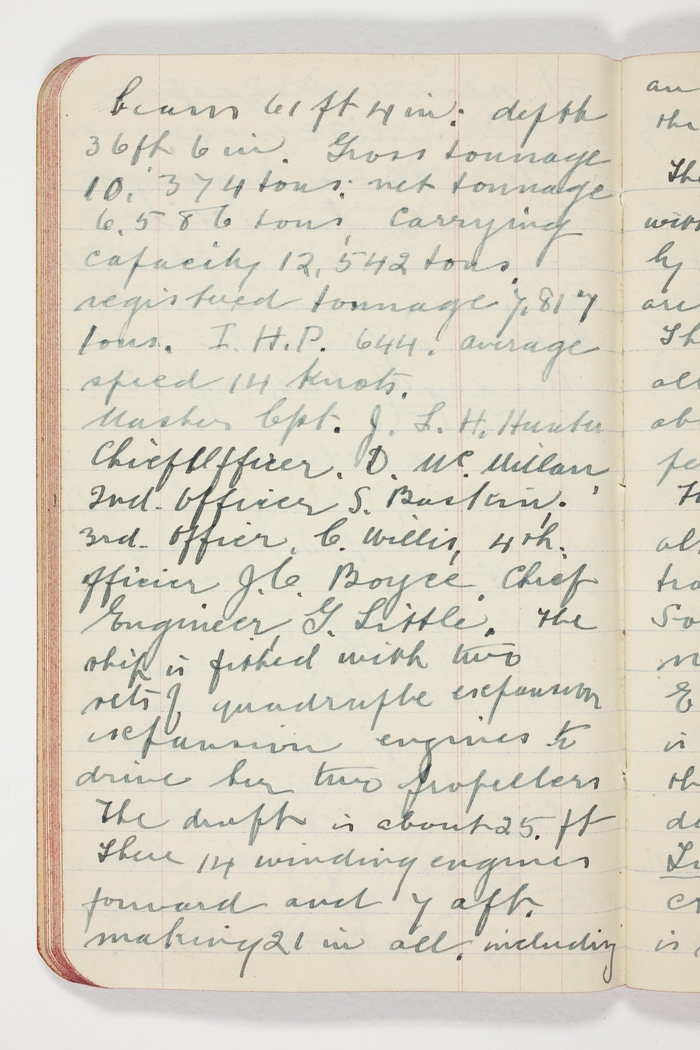 beam 61 ft 4 in. depth
36ft 6 in. Gross tonnage
10,374 tons; net tonnage
6,586 tons, Carrying
capacity 12,542 tons,
registered tonnage 7,817
tons. I.H.P. 644. average
speed 14 Knots.
Master Cpt. J. L. H. Hunter
Chief Officer. D. Mc. Millan
2nd. Officer S. Baskin.
3rd. Officer, C. Willis, 4th.
officier J.C. Boyce, Chief
Engineer, G. Little, The
ship is fitted with two
sets of quadruple expansion
expansion engines to
drive her two propellers
The draft is about 25. ft
There 14 winding engines
forward and 7 aft.
making 21 in all, including
an
the
The
with
by
are
Th
all
abo
fe
all
tra
So
E
is
th
de
is